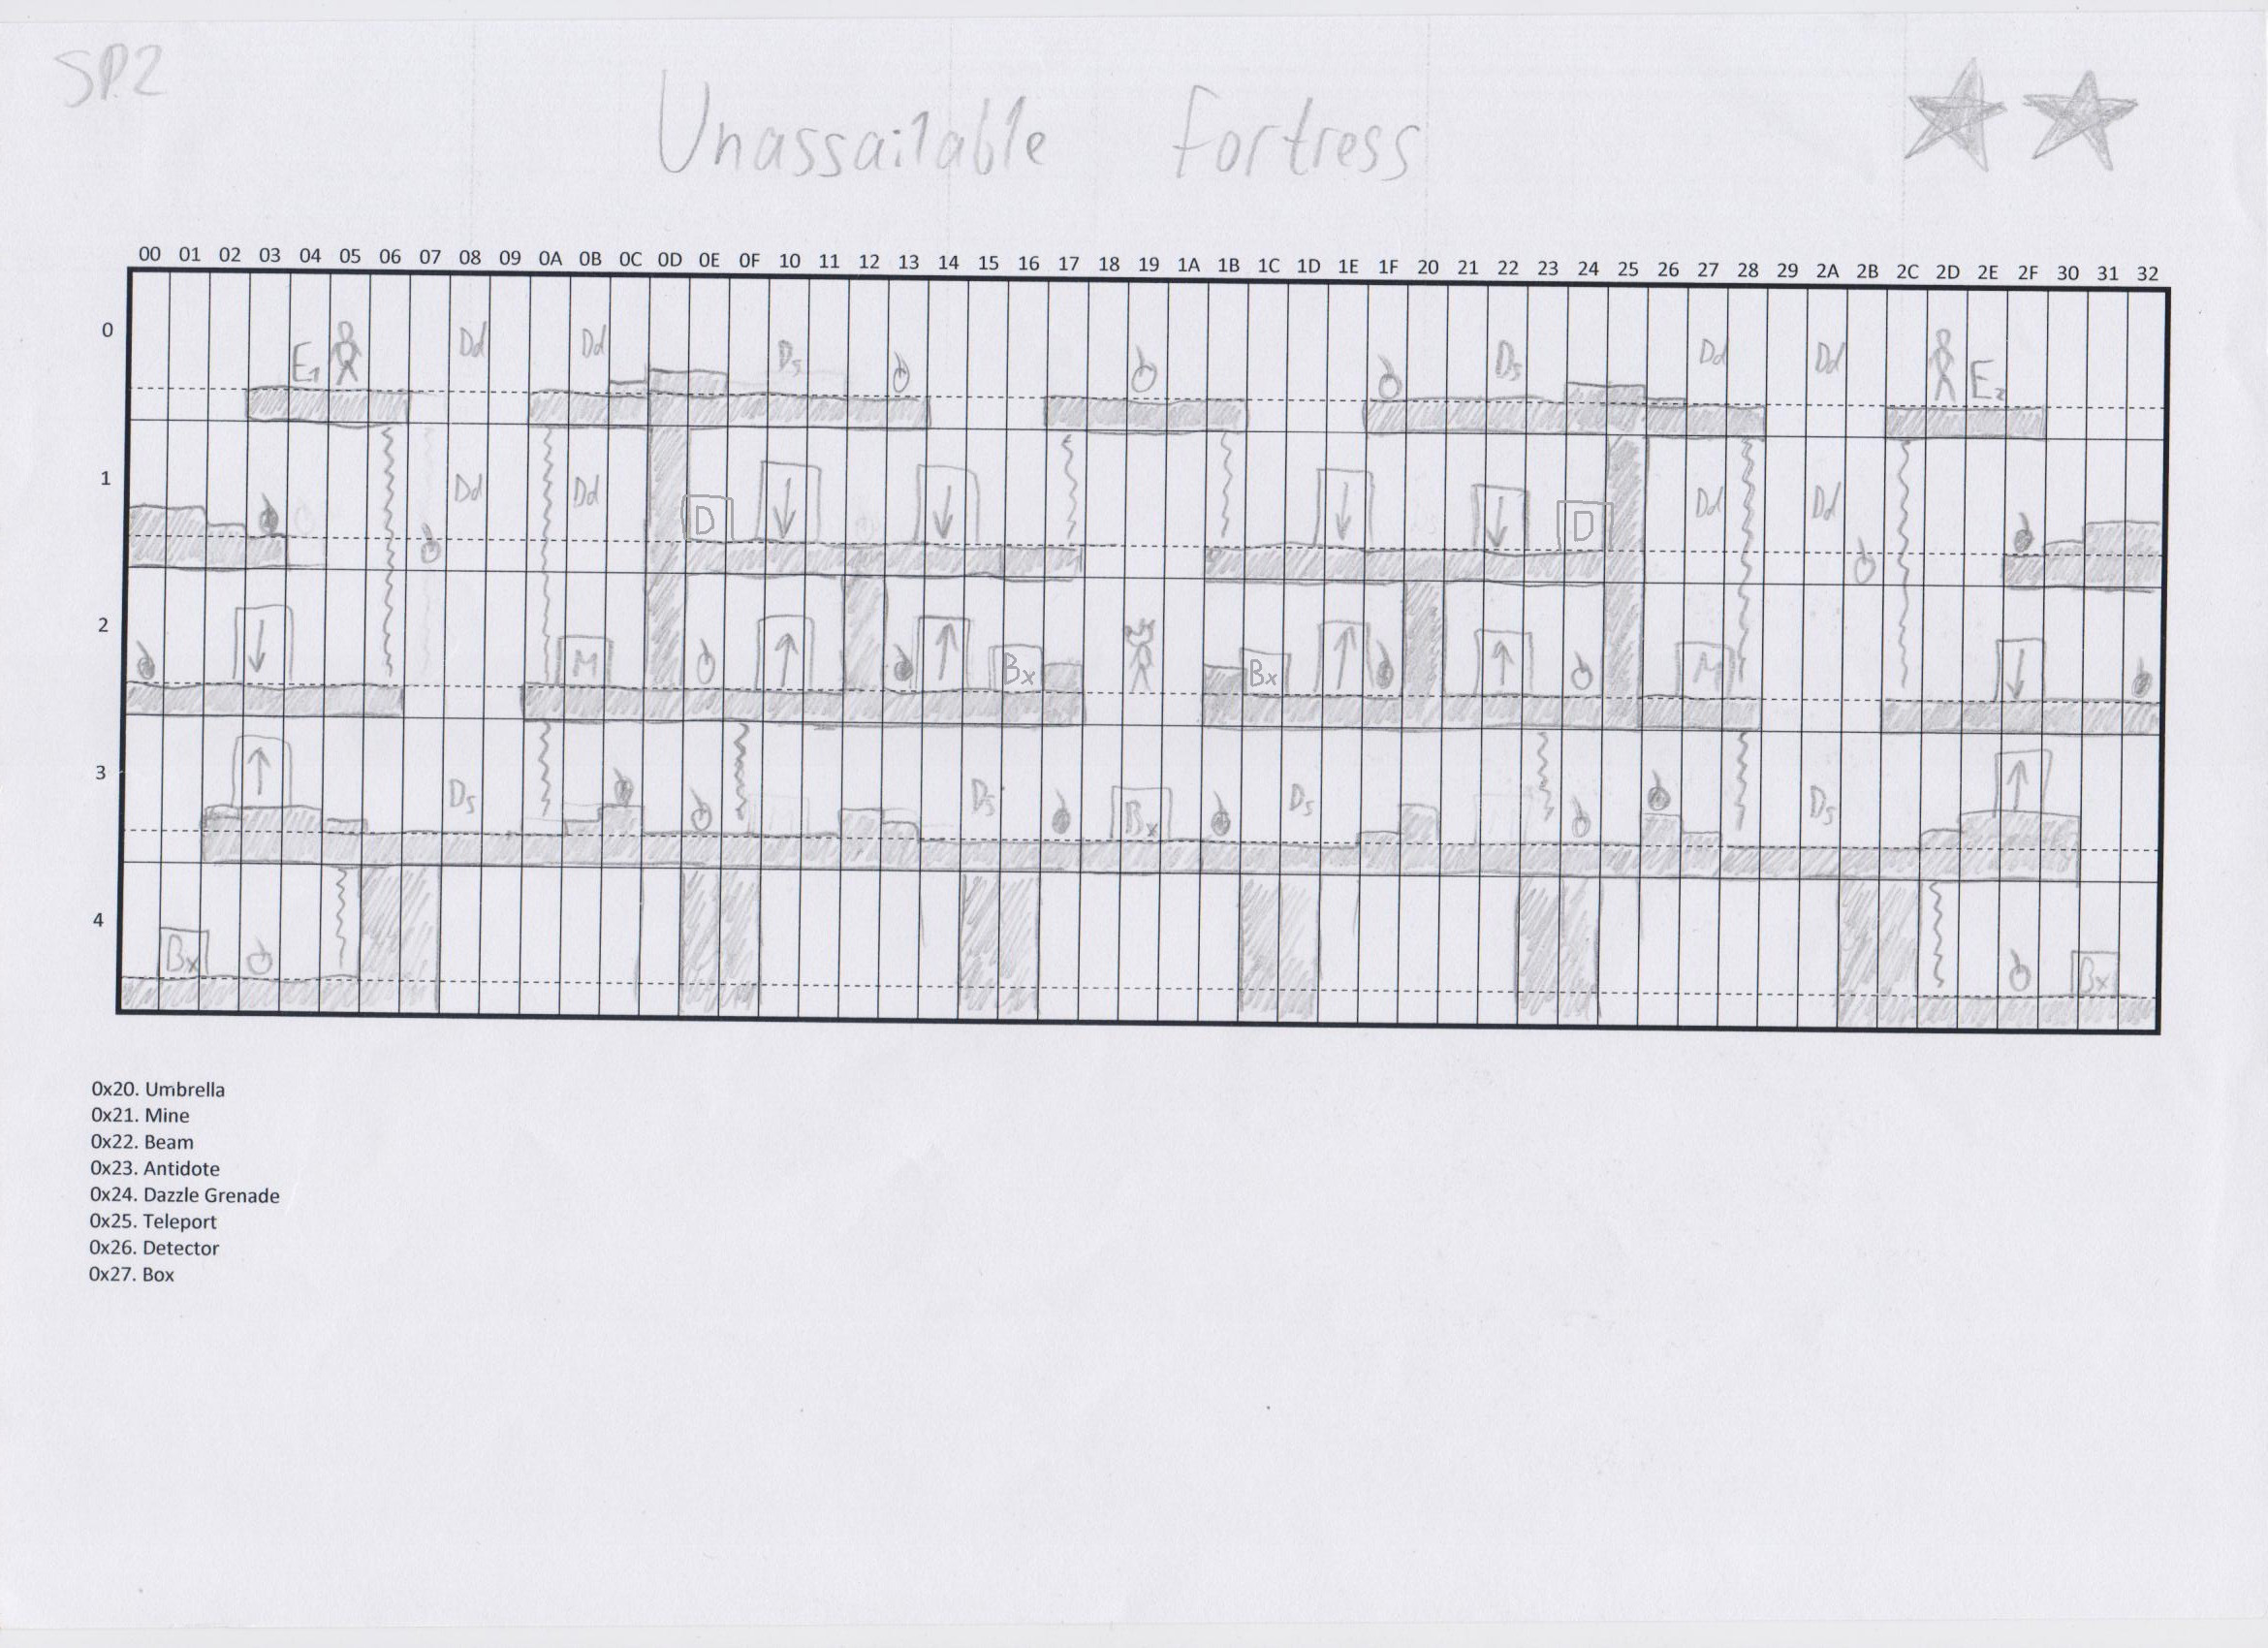 SP.2
Unassailable Fortress
00 01 02 03 04 05 06 07 08 09 0A 0B 0C 0D 0E 0F 10 11 12 13 14 15 16 17 18 19 1A 1B 1C 1D 1E 1F 20 21 22 23 24 25 26 27 28 29 2A 2B 2C 2D 2E 2F 30 31 32
0
E1 Dd Dd Ds Ds Dd Dd E2
1
Dd Dd D D Dd Dd
2
M Bx Bx M
3
Ds Ds Bx Ds Ds
4
Bx Bx
0x20. Umbrella
0x21. Mine
0x22. Beam
0x23. Antidote
0x24. Dazzle Grenade
0x25. Teleport
0x26. Detector
0x27. Box